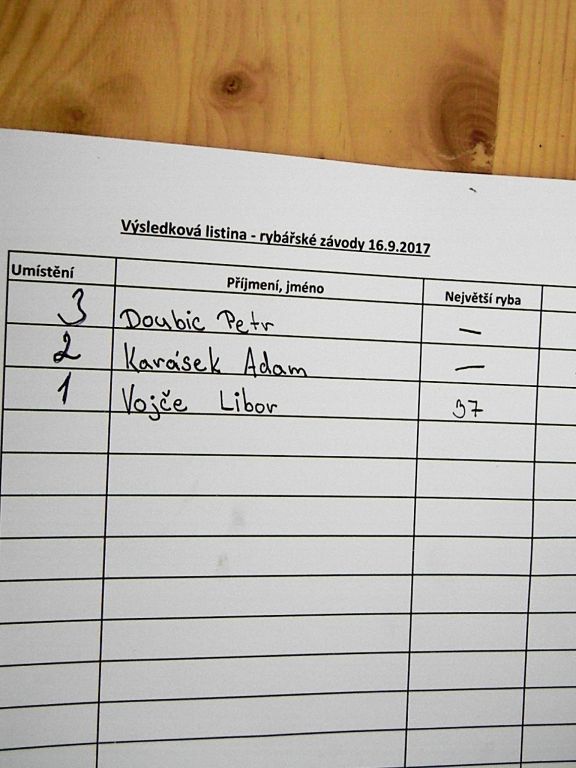 Výsledková listina - rybářské závody 16.9.2017
Umístění Příjmení, jméno Největší ryba
3 Doubic Petr —
2 Karásek Adam —
1 Vojče Libor 37